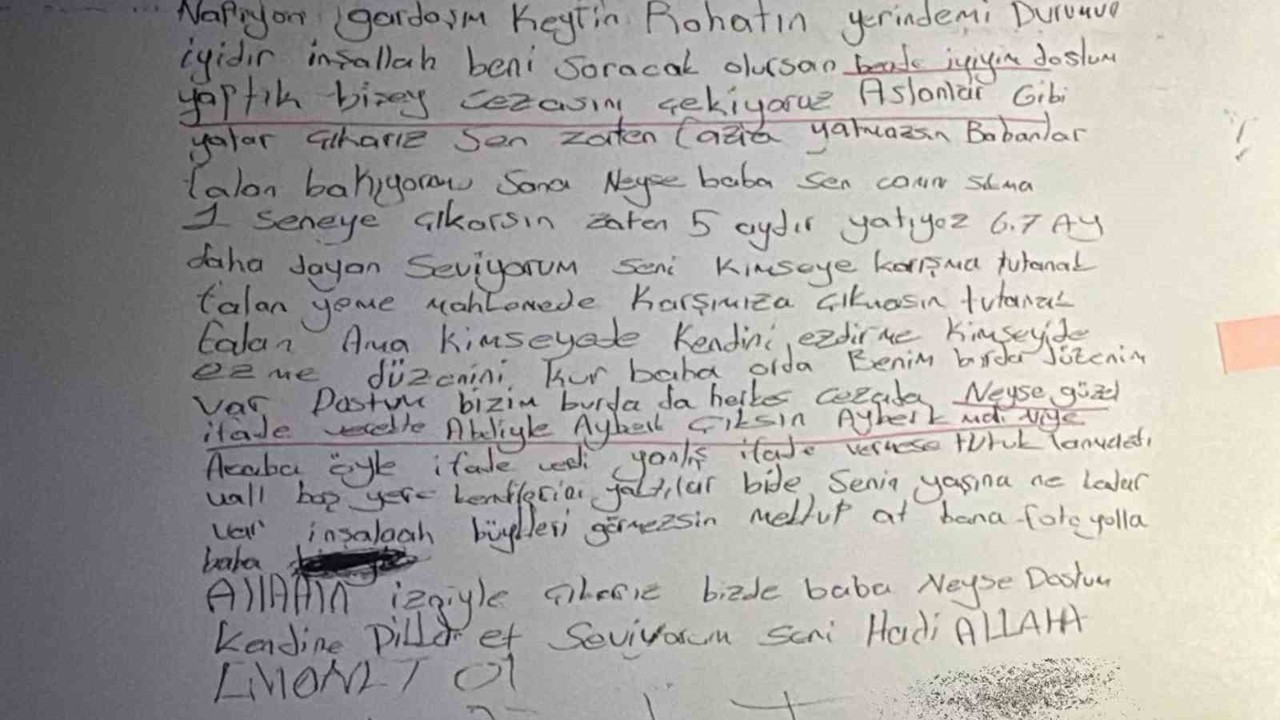 Napiyon gardaşım Keyfin Rahatın yerindemi Durumun
iyidir inşallah beni soracak olursan bende iyiyim dostum
yaptık bizey cezasını çekiyoruz Aslanlar Gibi
yatar çıkarız Sen zaten fazla yatmazsın Babanlar
falan bakıyorau Sana Neyse baba sen canını sıkma
1 seneye çıkarsın zaten 5 aydır yatıyoz 6.7 Ay
daha dayan Seviyorum seni kimseye karışma tutanak
falan yeme mahkemede karşımıza çıkmasın tutanak
falan Ama kimseyede kendini ezdirme kimseyide
ezme düzenini kur baba orda Benim burda düzenim
var Dostum bizim burda da herkes cezada Neyse güzel
ifade Abdiyle Ayberk çıksın Ayberk diye
Acaba öyle ifade verdi yanlış ifade vermese tutuk
vall boş yere kendilerini yaktılar bide Senin yaşına ne kadar
var inşalaah büykleri görmezsin mektup at bana foto yolla
baba
AllAHIN izniyle çıkarız bizde baba Neyse Dostum
kendine Dikkat et Seviyorum seni Hadi ALLAHA
EMANET Ol